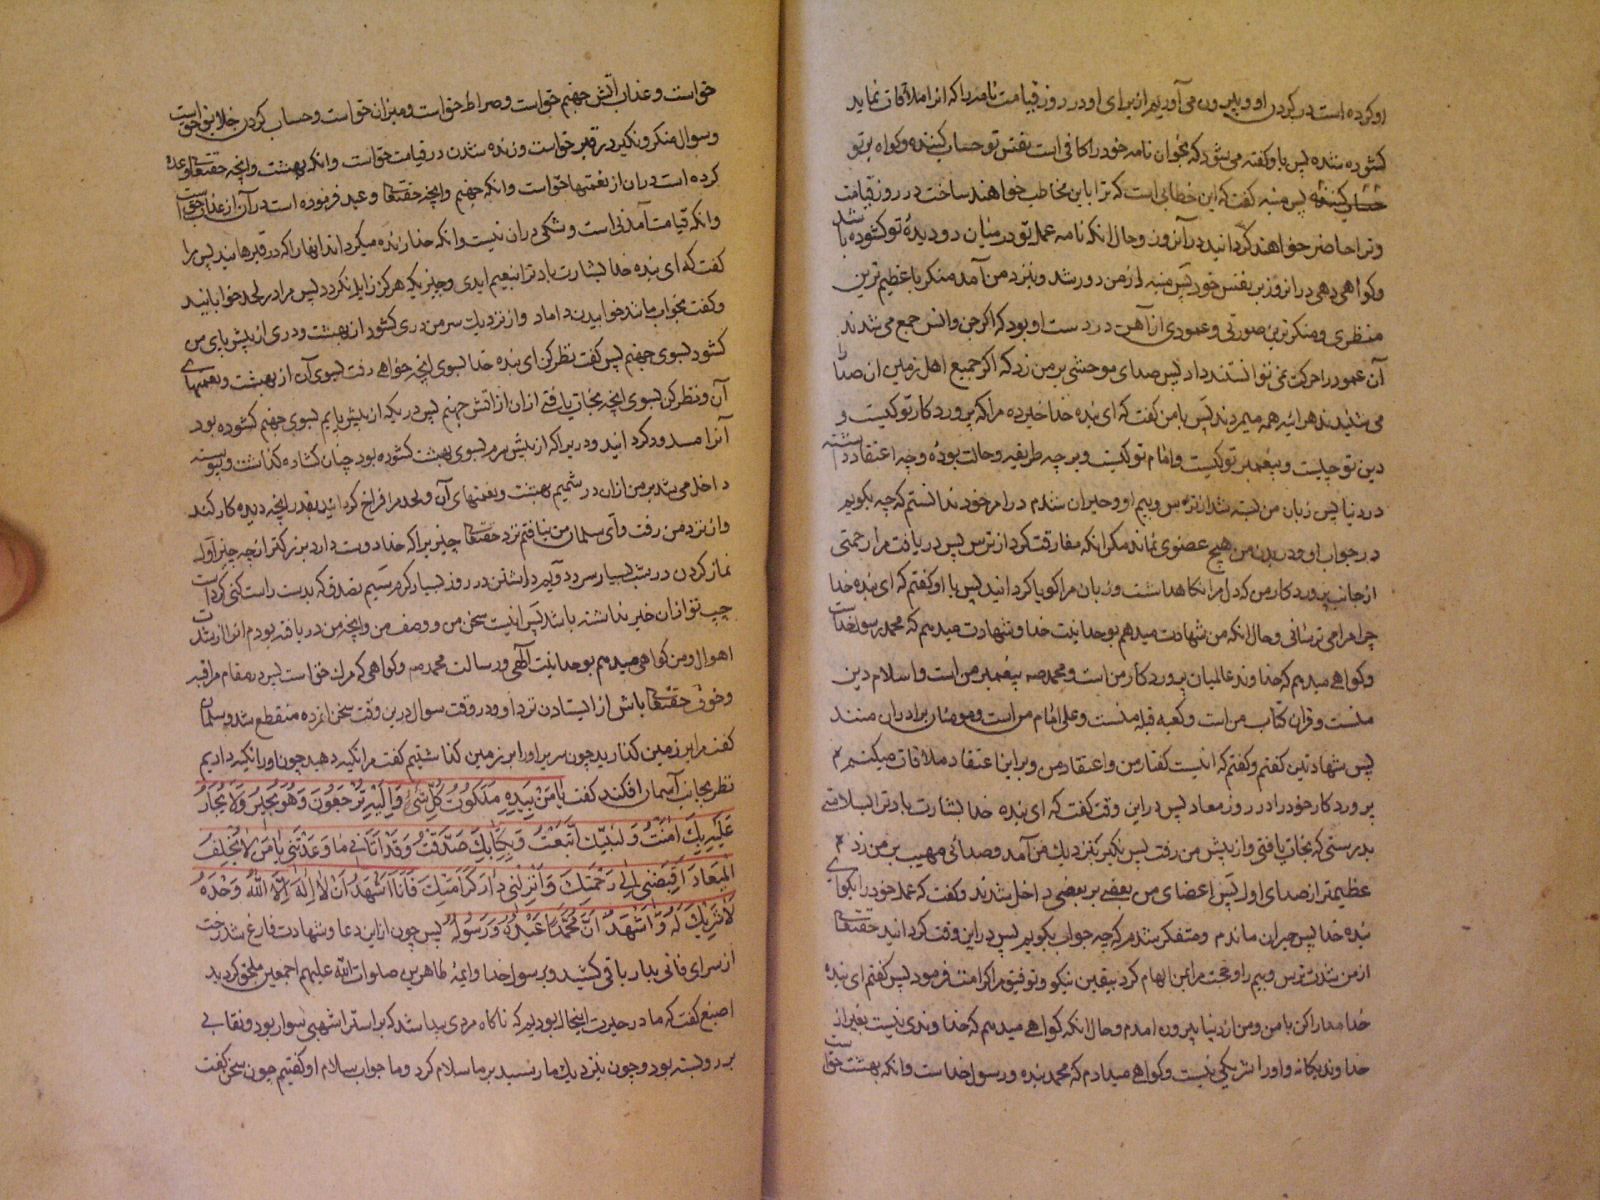 او کرده است در کردن او و بیرون می آوریم از برای او در روز قیامت نامه را که انرا ملاقات نماید
کشوده شده پس باو کفته می شود که بخوان نامه خود را کافی است نفس تو حساب کننده و کواه بر تو
پس منبه کفت که این خطابی است که ترا باین مخاطب خواهند ساخت در روز قیامت
و ترا حاضر خواهند کردانید در آنروز و حال انکه نامه عمل تو در میان دو دیدۀ تو کشوده باشد
و کواهی دهی در انروز بر نفس خود پس منبه از من دور شد و بنزد من آمد منکر با عظیم ترین
منظری و منکر ترین صورتی و عمودی از آهن در دست او بود که اکر جن و انس جمع می شدند
آن عمود را حرکت نمی توانستند داد پس صدای موحشی بر من زد که اکر جمیع اهل زمین ان صدا را
می شنیدند هراینه همه میمردند پس با من کفت که ای بنده خدا خبر ده مرا که پرورد کار تو کیست و
دین تو چیست و پیغمبر تو کیست و امام تو کیست و بر چه طریقه و حالت بودۀ و چه اعتقاد داشته
در دنیا پس زبان من بسته شد از ترس و بیم او و حیران شدم در امر خود ندانستم که چه بکویم
در جواب او و در بدن من هیچ عضوی نماند مکر انکه مفارقت کرد از ترس پس دریافت مرا رحمتی
از جانب پرورد کار من که دل مرا نکاهداشت و زبان مرا کویا کردانید پس با او کفتم که ای بنده خدا
چرا مرا می ترسانی و حال انکه من شهادت میدهم بوحدانیت خدا و شهادت میدهم که محمد رسول خداست
و کواهی میدهم که خداوند عالمیان پرورد کار من است و محمد صه پیغمبر من است و اسلام دین
منست و قران کتاب من است و کعبه قبله منست و علی امام من است و مومنان برادران منند
پس شهادتین کفتم و کفتم که اینست کفتار من و اعتقاد من و بر این اعتقاد ملاقات میکنم
پرورد کار خود را در روز معاد پس در این وقت کفت که ای بنده خدا بشارت باد ترا بسلامتی
بدرستی که نجات یافتی و از پیش من رفت پس نکیر بنزدیک من آمد و صدائی مهیب بر من زد
عظیمتر از صدای اول پس اعضای من بعضی بر بعضی داخل شدند و کفت که عمل خود را بکو ای
بنده خدا پس حیران ماندم و متفکر شدم که چه جواب بکویم پس در این وقت کردانید حقتعالی
از من شدت ترس و بیم را و حجت مرا بمن الهام کرد بیقین نیکو و توفیق مرا کرامت فرمود پس کفتم ای بنده
خدا مدارا کن با من و من از دنیا بیرون امدم و حال انکه کواهی میدهم که خداوندی نیست بغیر از
خداوند یکانه و او را شریکی نیست و کواهی میدادم که محمد بنده و رسول خداست و انکه بهشت حق است
حق است و عذاب آتش جهنم حق است و صراط حق است و میزان حق است و حساب کردن خلایق حق است
و سوال منکر و نکیر در قبر حق است و زنده شدن در قیامت حق است و انکه بهشت و انچه حقتعالی وعده
کرده است دران از نعمتها حق است و انکه جهنم و انچه حقتعالی وعید فرموده است در آن از عذاب حق است
و انکه قیامت آمدنی است و شکی دران نیست و انکه خدا زنده میکرداند انها را که در قبرهایند پس مرا
کفت که ای بنده خدا بشارت باد ترا بنعیم ابدی و چیزیکه هرکز زایل نکردد پس مرا در لحد خوابانید
و کفت بخواب مانند خوابیدن داماد و از نزدیک سر من دری کشود از بهشت و دری از پیش پای من
کشود بسوی جهنم پس کفت نظر کن ای بنده خدا بسوی انچه خواهی رفت بسوی آن از بهشت و نعمتهای
آن و نظر کن بسوی انچه نجات یافتی از ان از اتش جهنم پس دریکه از پیش پایم بسوی جهنم کشوده بود
آنرا مسدود کردانید و دریرا که از پیش سرم بسوی بهشت کشوده بود چنان کشاده کذاشت و پیوسته
داخل می شد بر من ازان در شمیم بهشت و نعمتهای آن و لحد مرا فراخ کردانید بقدر انچه دیده کار کند
و از نزد من رفت و ای سلمان من نیافتم نزد حقتعالی چیزیرا که خدا دوست دارد بزرکتر از سه چیز اول
نماز کردن در شب بسیار سرد دویم روزه داشتن در روز بسیار کرم سیم تصدقی که بدست راست کنی که دست
چپ تو ازان خبر نداشته باشد پس اینست سخن من و وصف من و انچه من دریافته بودم انرا از شدت
اهوال و من کواهی میدهم بوحدانیت آلهی و رسالت محمد صه و کواهی که مرک حق است پس در مقام مراقبه
و خوف حقتعالی باش از ایستادن نزد او و در وقت سوال درین وقت سخن انمرده منقطع شد و سلمان
کفت مرا بر زمین کذارید چون سریر او را بر زمین کذاشتیم کفت مرا تکیه دهید چون او را تکیه دادیم
نظر بجانب آسمان افکند و کفت یا مَنْ بِیَدِهِ مَلَکُوتُ کُلِّ شَیْءٍ وَاِلَیْهِ تُرْجَعُونَ وَهُوَ یُجیرُ وَلا یُجارُ
عَلَیْهِ بِکَ امَنْتُ وَلِنَبِیِّکَ اتَّبَعْتُ وَبِکِتابِکَ صَدَّقْتُ وَقَدْ اَتانی ما وَعَدْتَنی یا مَنْ لا یُخْلِفُ
الْمیعادَ اِقْبِضْنی اِلی رَحْمَتِکَ وَاَنْزِلْنی دارَ کَرامَتِکَ فَاَنَا اَشْهَدُ اَنْ لا اِلهَ اِلَّا اللهُ وَحْدَهُ
لا شَریکَ لَهُ وَاَشْهَدُ اَنَّ مُحَمَّداً عَبْدُهُ وَرَسُولُهُ پس چون از این دعا و شهادت فارغ شد رخت
از سرای فانی بدار باقی کشید و برسول خدا و ائمه طاهرین صلوات الله علیهم اجمعین ملحق کردید
اصبغ کفت که ما در حیرت اینحال بودیم که ناکاه مردی پیدا شد که بر استر اشهبی سوار بود و نقابی
بر رو بسته بود و چون بنزدیک ما رسید بر ما سلام کرد و ما جواب سلام او کفتیم چون سخن کفت